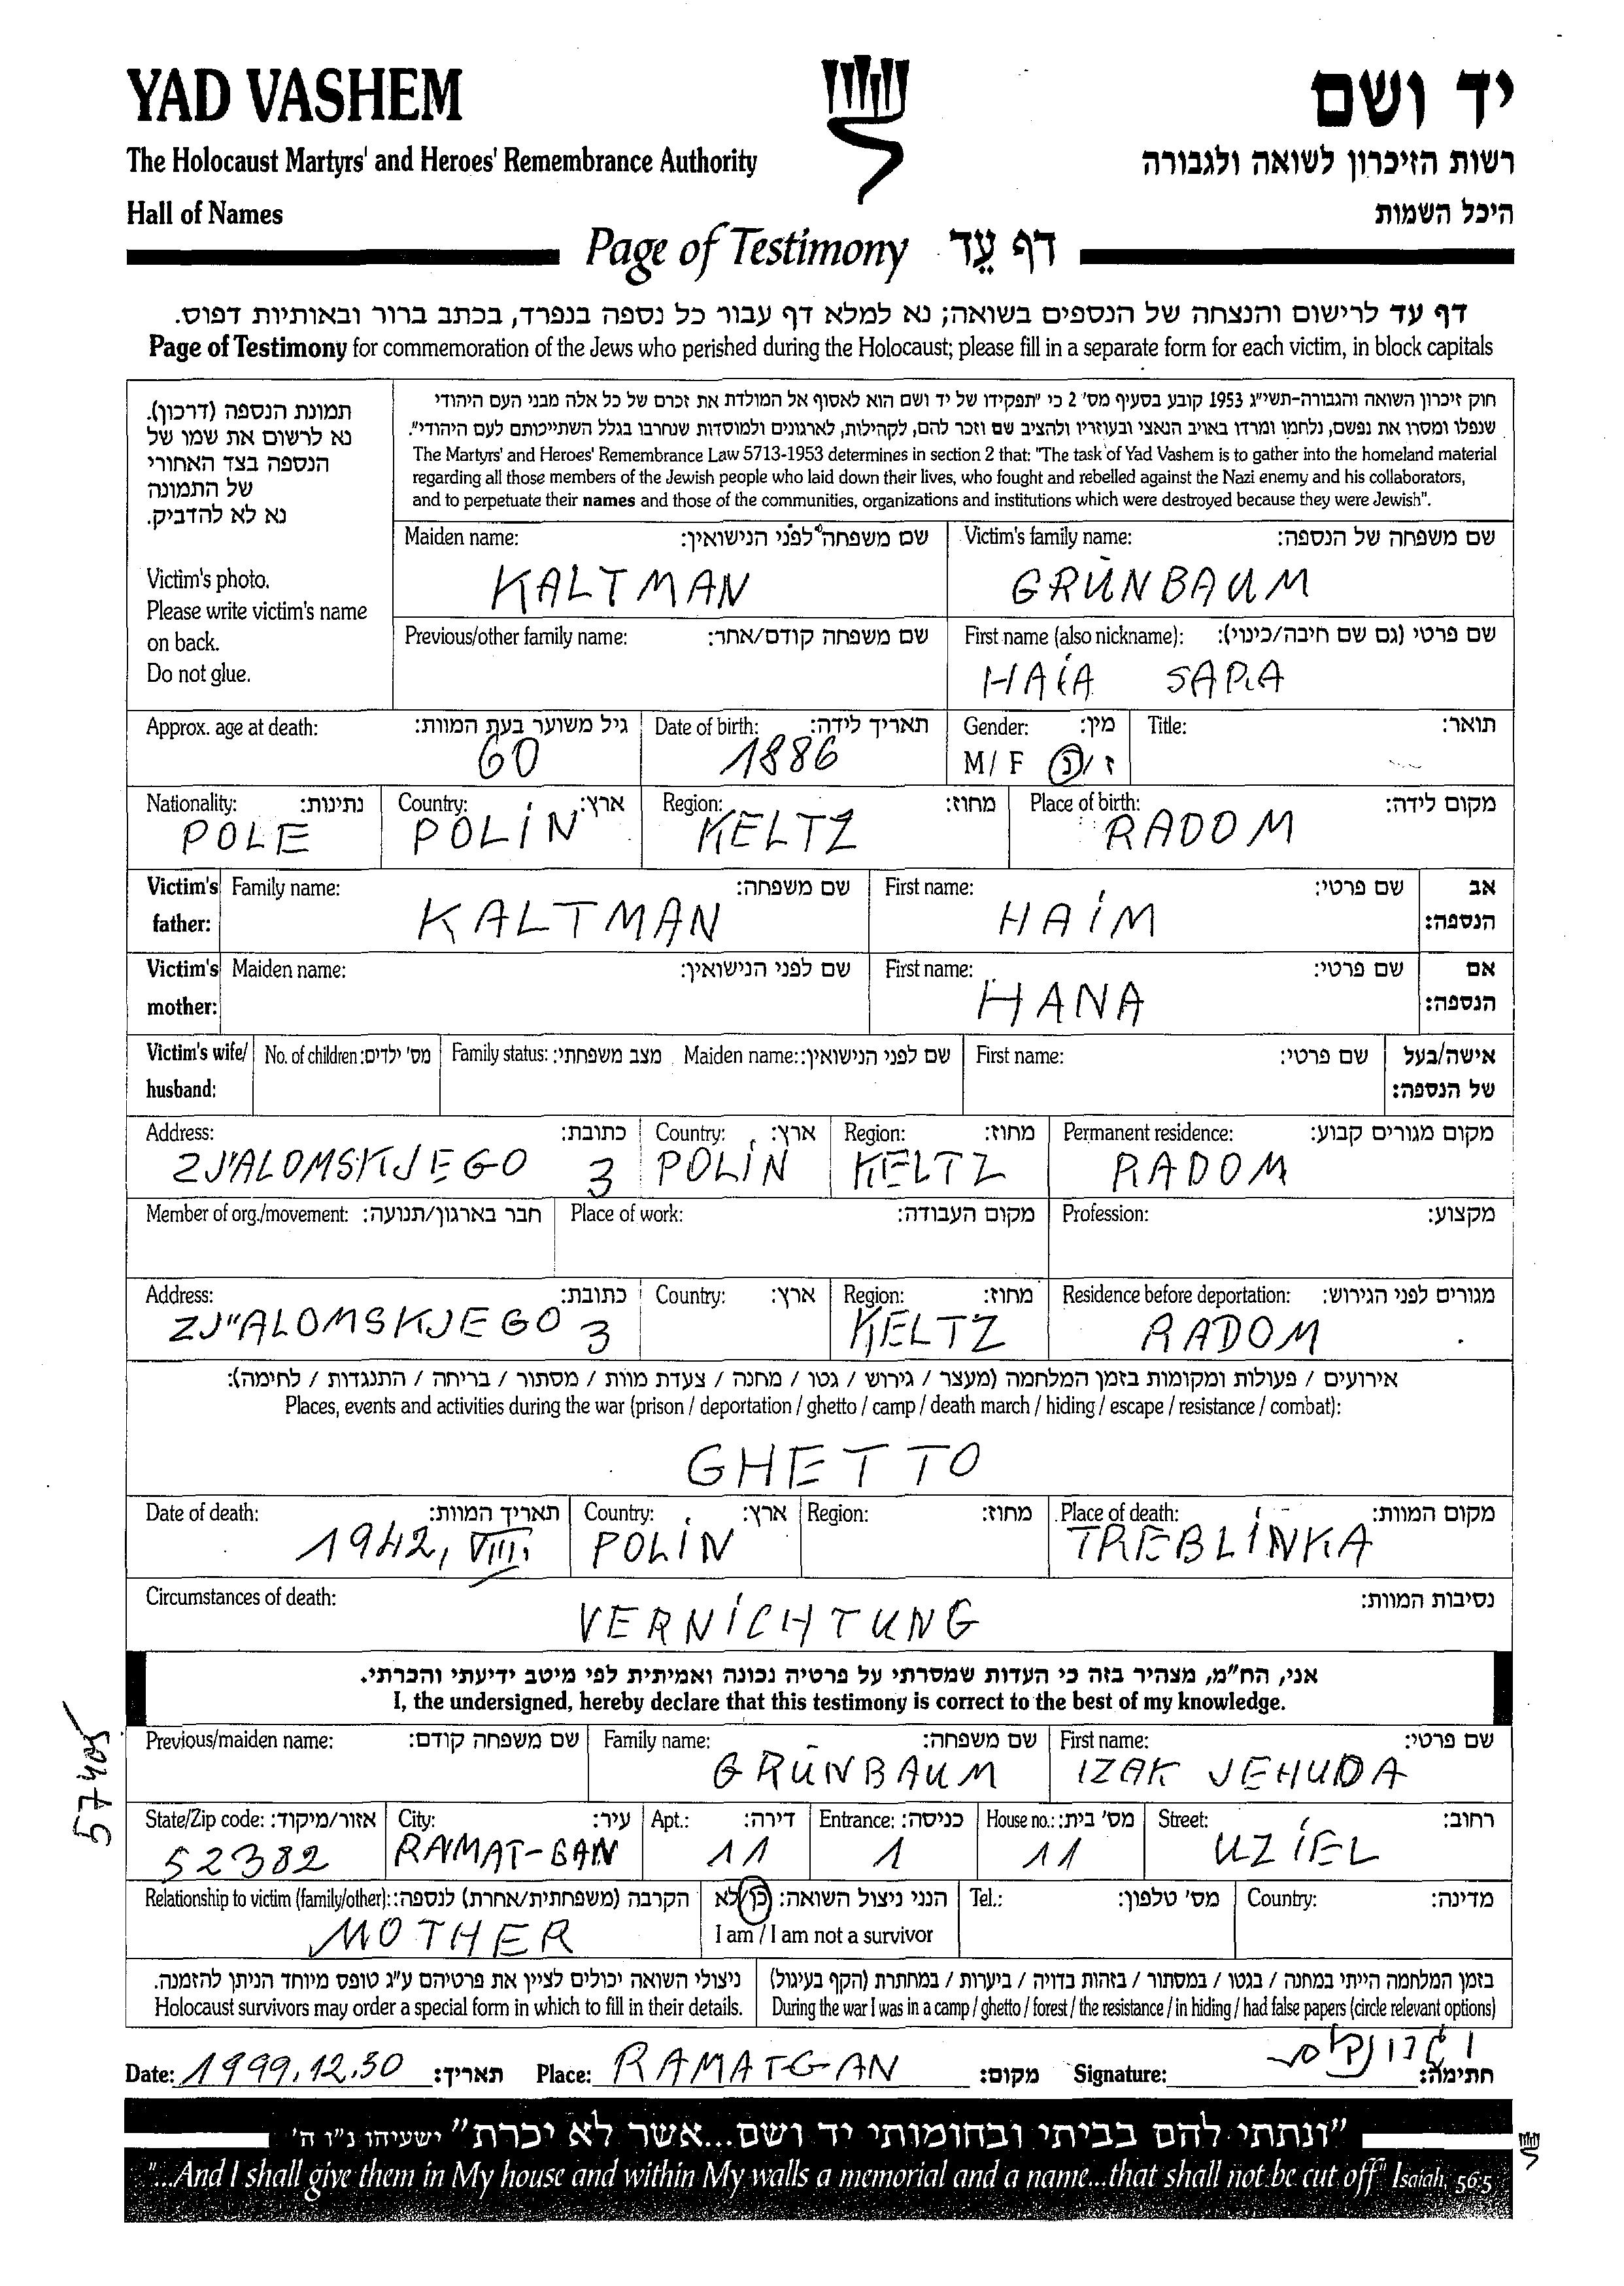 YAD VASHEM
יד ושם
The Holocaust Martyrs' and Heroes' Remembrance Authority
רשות הזיכרון לשואה ולגבורה
Hall of Names
היכל השמות
Page of Testimony דף עֵד
דף עד לרישום והנצחה של הנספים בשואה; נא למלא דף עבור כל נספה בנפרד, בכתב ברור ובאותיות דפוס.
Page of Testimony for commemoration of the Jews who perished during the Holocaust; please fill in a separate form for each victim, in block capitals
תמונת הנספה (דרכון).
נא לרשום את שמו של
הנספה בצד האחורי
של התמונה
נא לא להדביק.
Victim's photo.
Please write victim's name
on back.
Do not glue.
חוק זיכרון השואה והגבורה-תשי"ג 1953 קובע בסעיף מס' 2 כי "תפקידו של יד ושם הוא לאסוף אל המולדת את זכרם של כל אלה מבני העם היהודי
שנפלו ומסרו את נפשם, נלחמו ומרדו באויב הנאצי ובעוזריו ולהציב שם וזכר להם, לקהילות, לארגונים ולמוסדות שנחרבו בגלל השתייכותם לעם היהודי".
The Martyrs' and Heroes' Remembrance Law 5713-1953 determines in section 2 that: "The task of Yad Vashem is to gather into the homeland material
regarding all those members of the Jewish people who laid down their lives, who fought and rebelled against the Nazi enemy and his collaborators,
and to perpetuate their names and those of the communities, organizations and institutions which were destroyed because they were Jewish".
Maiden name: שם משפחה לפני הנישואין: Victim's family name: שם משפחה של הנספה:
KALTMAN GRÜNBAUM
Previous/other family name: שם משפחה קודם/אחר: First name (also nickname): שם פרטי (גם שם חיבה/כינוי):
HAIA SARA
Approx. age at death: גיל משוער בעת המוות: Date of birth: תאריך לידה: Gender: מין: Title: תואר:
60 1886 M/ F ז/נ
Nationality: נתינות: Country: ארץ: Region: מחוז: Place of birth: מקום לידה:
POLE POLIN KELTZ RADOM
Victim's father: Family name: שם משפחה: First name: שם פרטי: אב הנספה:
KALTMAN HAIM
Victim's mother: Maiden name: שם לפני הנישואין: First name: שם פרטי: אם הנספה:
HANA
Victim's wife/ husband: No. of children: מס' ילדים: Family status: מצב משפחתי: Maiden name: שם לפני הנישואין: First name: שם פרטי: אישה/בעל של הנספה:
Address: כתובת: Country: ארץ: Region: מחוז: Permanent residence: מקום מגורים קבוע:
ZJ'ALOMSKJEGO 3 POLIN KELTZ RADOM
Member of org./movement: חבר בארגון/תנועה: Place of work: מקום העבודה: Profession: מקצוע:
Address: כתובת: Country: ארץ: Region: מחוז: Residence before deportation: מגורים לפני הגירוש:
ZJ"ALOMSKJEGO 3 KELTZ RADOM
אירועים / פעולות ומקומות בזמן המלחמה (מעצר / גירוש / גטו / מחנה / צעדת מוות / מסתור / בריחה / התנגדות / לחימה):
Places, events and activities during the war (prison / deportation / ghetto / camp / death march / hiding / escape / resistance / combat):
GHETTO
Date of death: תאריך המוות: Country: ארץ: Region: מחוז: Place of death: מקום המוות:
1942, VIII, POLIN TREBLINKA
Circumstances of death: נסיבות המוות:
VERNICHTUNG
אני, הח"מ, מצהיר בזה כי העדות שמסרתי על פרטיה נכונה ואמיתית לפי מיטב ידיעתי והכרתי.
I, the undersigned, hereby declare that this testimony is correct to the best of my knowledge.
57405
Previous/maiden name: שם משפחה קודם: Family name: שם משפחה: First name: שם פרטי:
GRÜNBAUM IZAK JEHUDA
State/Zip code: אזור/מיקוד: City: עיר: Apt.: דירה: Entrance: כניסה: House no.: מס' בית: Street: רחוב:
52382 RAMAT-GAN 11 1 11 UZIEL
Relationship to victim (family/other): הקרבה (משפחתית/אחרת) לנספה: הנני ניצול השואה: כן/לא Tel.: מס' טלפון: Country: מדינה:
MOTHER I am / I am not a survivor
ניצולי השואה יכולים לציין את פרטיהם ע"ג טופס מיוחד הניתן להזמנה. בזמן המלחמה הייתי במחנה / בגטו / במסתור / בזהות בדויה / ביערות / במחתרת (הקף בעיגול)
Holocaust survivors may order a special form in which to fill in their details. During the war I was in a camp / ghetto / forest / the resistance / in hiding / had false papers (circle relevant options)
Date: 1999.12.30 תאריך: Place: RAMATGAN מקום: Signature: חתימה:
"ונתתי להם בביתי ובחומותי יד ושם...אשר לא יכרת" ישעיהו נ"ו ה'
"...And I shall give them in My house and within My walls a memorial and a name...that shall not be cut off" Isaiah, 56:5